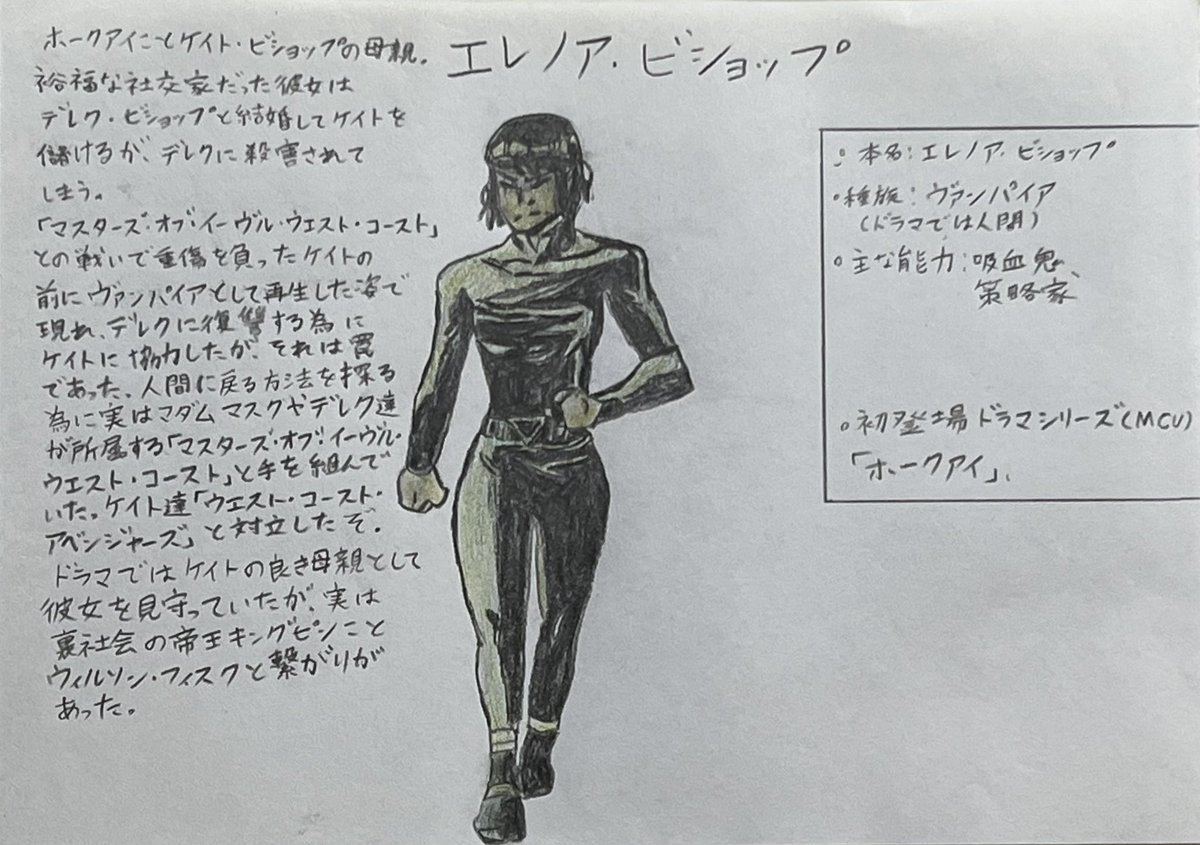 エレノア・ビショップ
ホークアイことケイト・ビショップの母親。
裕福な社交家だった彼女は
デレク・ビショップと結婚してケイトを
儲けるが、デレクに殺害されて
しまう。
「マスターズ・オブ・イーヴル・ウエスト・コースト」
との戦いで重傷を負ったケイトの
前にヴァンパイアとして再生した姿で
現れ、デレクに復讐する為に
ケイトに協力したが、それは罠
であった。人間に戻る方法を探る
為に実はマダムマスクやデレク達
が所属する「マスターズ・オブ・イーヴル・
ウエスト・コースト」と手を組んで
いた。ケイト達「ウエスト・コースト・
アベンジャーズ」と対立したぞ。
ドラマではケイトの良き母親として
彼女を見守っていたが、実は
裏社会の帝王キングピンこと
ウィルソン・フィスクと繋がりが
あった。
・本名:エレノア・ビショップ
・種族:ヴァンパイア
(ドラマでは人間)
・主な能力:吸血鬼、
策略家
・初登場 ドラマシリーズ(MCU)
「ホークアイ」、